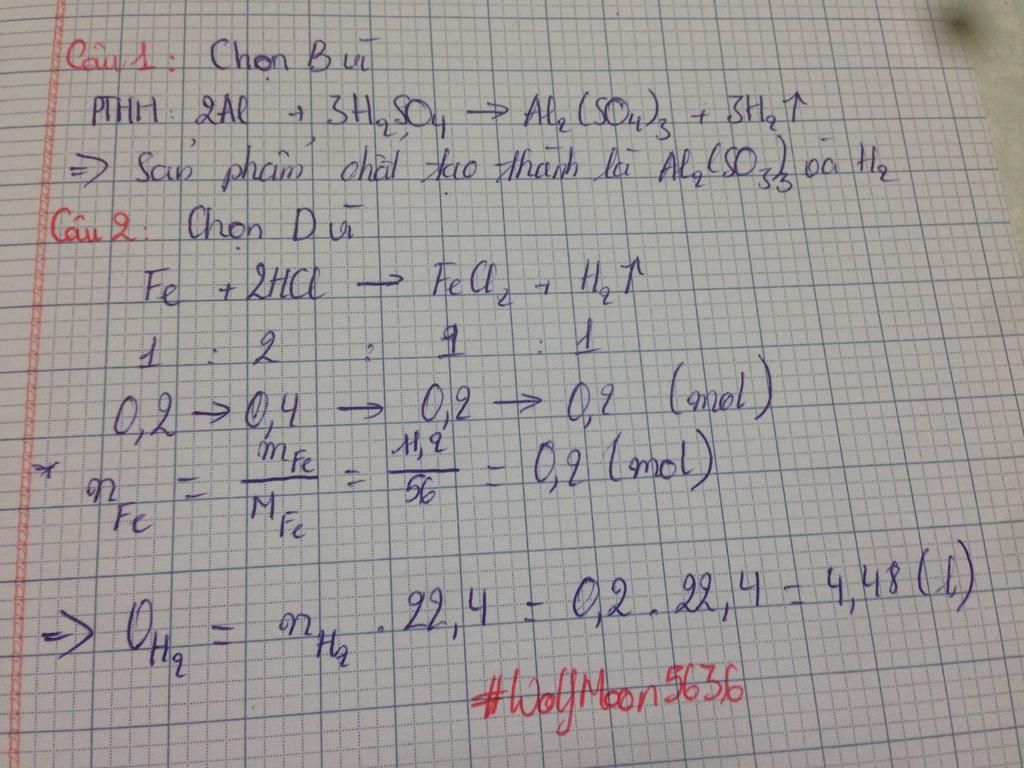 Câu 1: Chọn B vì
PTHH: 2Al + 3H₂SO₄ → Al₂(SO₄)₃ + 3H₂↑
=> Sản phẩm chất tạo thành là Al₂(SO₃)₃ và H₂
Câu 2: Chọn D vì
Fe + 2HCl → FeCl₂ + H₂↑
1 : 2 : 1 : 1
0,2 → 0,4 → 0,2 → 0,2 (mol)
* n_Fe = m_Fe / M_Fe = 11,2 / 56 = 0,2 (mol)
=> V_H₂ = n_H₂ . 22,4 = 0,2 . 22,4 = 4,48 (l)
#WolfMoon5636